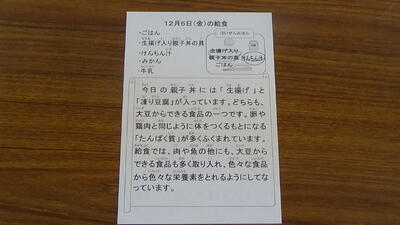 12月6日(金)の給食
・ごはん
・生揚げ入り親子丼の具
・けんちん汁
・みかん
・牛乳
はいぜんのしかた
生揚げ入り
親子丼の具
ごはん
けんちん汁
今日の親子丼には「生揚げ」と
「凍り豆腐」が入っています。どちらも、
大豆からできる食品の一つです。卵や
鶏肉と同じように体をつくるもとになる
「たんぱく質」が多くふくまれています。
給食では、肉や魚の他にも、大豆から
できる食品も多く取り入れ、色々な食品
から色々な栄養素をとれるようにしてな
っています。